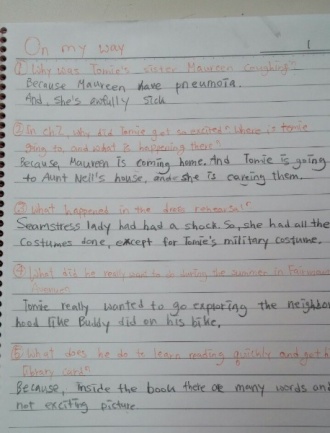 On my way 1
① Why was Tomie's sister Maureen coughing?
Because Maureen have pneumoia.
And, she's awfully sick
② In ch2, why did Tomie get so excited? Where is tomie
going to, and what is happening there?
Because, Maureen is coming home. And Tomie is going
to Aunt Nell's house, and she is caring them.
③ What happened in the dress rehearsal?
Seamstress lady had had a shock. So, she had all the
costumes done, except for Tomie's military costume.
④ What did he really want to do during the summer in Fairmount
Tomie really wanted to go exploring the neighbor
hood like Buddy did on his bike.
⑤ What does he do to learn reading quickly and get h
library card?
Because, inside the book there are many words and
not exciting picture